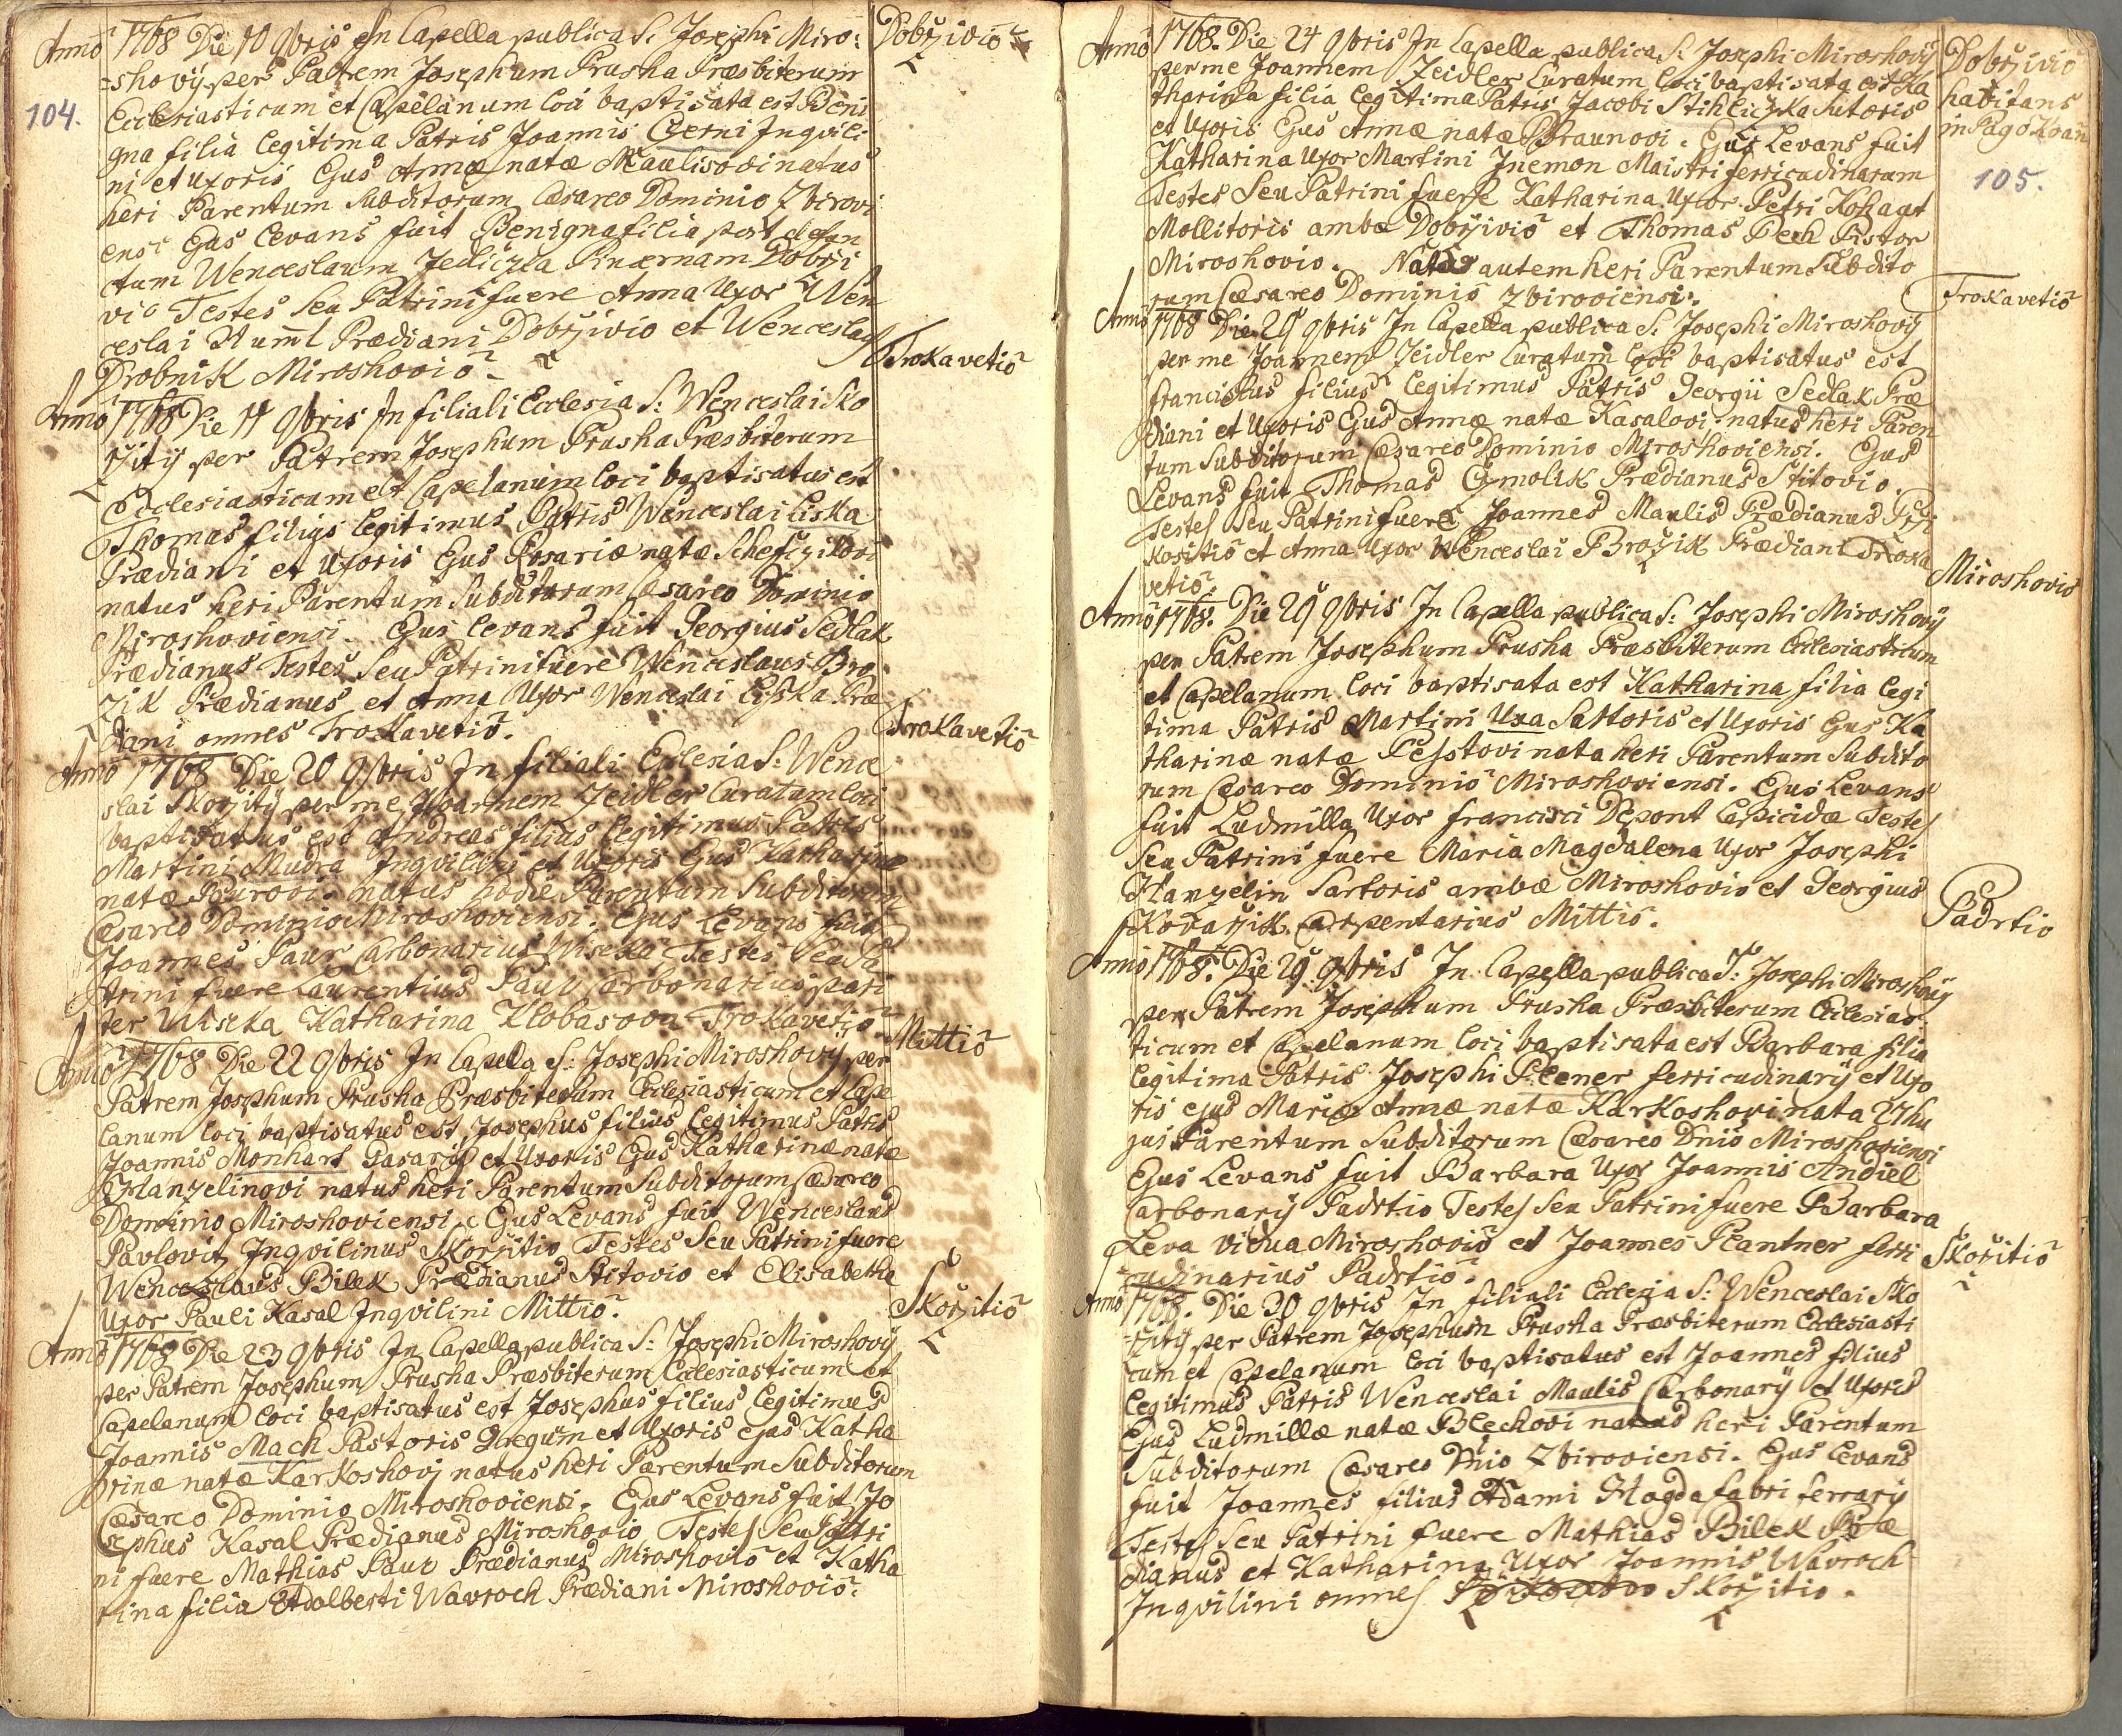 104.
Anno 1768 Die 10 9bris In Capella publica S. Josephi Miro:
Dobrzivio
-shovij per Patrem Josephum Prusha Præsbiterum
Ecclesiasticum et Capelanum loci baptisata est Beni
gna filia legitima Patris Joannis Czerni Inqvili
ni et Uxoris Ejus Annæ natæ Maulisovi natus
heri Parentum Subditorum Cæsareo Dominio Zbirovi
ensi Ejus Levans fuit Benigna filia post defun
ctum Wenceslaum Jedliczka Dobrzi
vio Testes Seu Patrini fuere Anna Uxor Wen
ceslai Huml Prædiani Dobrzivio et Wenceslaus
Drobnik Miroshovio
Trokavetio
Anno 1768 Die 11 9bris In filiali Ecclesia S: Wenceslai Sko
rzitij per Patrem Josephum Prusha Præsbiterum
Ecclesiasticum et Capelanum loci baptisatus est
Thomas filius legitimus Patris Wenceslai Liska
Prædiani et Uxoris Ejus Rosariæ natæ
natus heri Parentum Subditorum Cæsareo Dominio
Miroshoviensi. Ejus levans fuit Georgius Sedlak
Prædianus Testes Seu Patrini fuere Wenceslaus Bro
zik Prædianus et Anna Uxor Wenceslai Lisska Præ
diani omnes Trokavetio.
Trokavetio
Anno 1768 Die 20 9bris In filiali Ecclesia S: Wence
slai Skorzitij per me Joannem Zeidler Curatum loci
baptisatus est Andreas filius legitimus Patris
Martini Mudra Inqvilini et Uxoris Ejus Katharinæ
natæ Paurovi natus hodie Parentum Subditorum
Cæsareo Dominio Miroshoviensi. Ejus Levans fuit
Joannes Paur Carbonarius Wiseka Testes Seu Pa
trini fuere Laurentius Paur Carbonarius pari
ter Wiseka Katharina Klobasova Trokavetio
Mittio
Anno 1768 Die 22 9bris In Capella S: Josephi Miroshovij per
Patrem Josephum Prusha Præsbiterum Ecclesiasticum et Cape
lanum loci baptisatus est Josephus filius Legitimus Patris
Joannis Monhart Casarij et Uxoris Ejus Katharinæ natæ
Hanzelinovi natus heri Parentum Subditorum Cæsareo
Dominio Miroshoviensi. Ejus Levans fuit Wenceslaus
Pavlovit Inqvilinus Skorzitio Testes Seu Patrini fuere
Wenceslaus Bilek Prædianus Stitovio et Elisabetha
Uxor Pauli Kasal Inqvilini Mittio.
Skorzitio
Anno 1768 Die 23 9bris In Capella publica S: Josephi Miroshovij
per Patrem Josephum Prusha Præsbiterum Ecclesiasticum et
Capelanum loci baptisatus est Josephus filius legitimus
Joannis Mach Pastoris Gregum et Uxoris ejus Katha
rinæ natæ Karkoshovj natus heri Parentum Subditorum
Cæsareo Dominio Miroshoviensi. Ejus Levans fuit Jo
sephus Kasal Prædianus Miroshovio Testes Seu Patri
ni fuere Mathias Paur Prædianus Miroshovio et Katha
rina filia Adalberti Wavroch Prædiani Miroshovio.
Anno 1768. Die 24 9bris In Capella publica S. Josephi Miroshovij
Dobrzivio
habitans
in Pago
105.
per me Joannem Zeidler Curatum loci baptisata est Ka
tharina filia legitima Patris Jacobi Stihliczka Sutoris
et Uxoris Ejus Annæ natæ Braunovi. Ejus Levans fuit
Katharina Uxor Martini Inemon Maistri ferricudinarum
Testes Seu Patrini fuere Katharina Uxor Petri
Mollitoris ambæ Dobrzivio et Thomas Pech Pistor
Miroshovio. autem heri Parentum Subdito
rum Cæsareo Dominio Zbiroviensi.
Trokavetio
Anno 1768 Die 29 9bris In Capella publica S. Josephi Miroshovij
per me Joannem Zeidler Curatum loci baptisatus est
franciskus filius legitimus Patris Georgii Sedlak Præ
diani et Uxoris Ejus Annæ natæ Kasalovi. natus heri Paren
tum Subditorum Cæsareo Dominio Miroshoviensi. Ejus
Levans fuit Thomas Czmolik Prædianus Stitovio.
Testes Seu Patrini fuere Joannes Maulis Prædianus Przi
kositio et Anna Uxor Wenceslai Brozik Prædiani Troka
vetio.
Miroshovio
Anno 1768. Die 29 9bris In Capella publica S: Josephi Miroshovij
per Patrem Josephum Prusha Præsbiterum Ecclesiasticum
et Capelanum loci baptisata est Katharina filia legi
tima Patris Martini Uxa Sartoris et Uxoris Ejus Ka
tharinæ natæ nata heri Parentum Subdito
rum Cæsareo Dominio Miroshoviensi. Ejus Levans
fuit Ludmilla Uxor francisci Depont Lapicidæ Testes
Seu Patrini fuere Maria Magdalena Uxor Josephi
Hanzelin Sartoris ambæ Miroshovio et Georgius
Kovarzik Carpentarius Mittio.
Padrtio
Anno 1768. Die 29 9bris In Capella publica S: Josephi Miroshovij
per Patrem Josephum Prusha Præsbiterum Ecclesias
ticum et Capelanum loci baptisata est Barbara filia
legitima Patris Josephi Plener ferricudinarij et Uxo
ris ejus Mariæ Annæ natæ Karkoshovi nata 27 hu
jus Parentum Subditorum Cæsareo Dnio Miroshoviensi
Ejus Levans fuit Barbara Uxor Joannis Andiel
Carbonarij Padrtio Testes Seu Patrini fuere Barbara
Leva vidua Miroshovio et Joannes Plantner ferri
cudinarius Padrtio.
Skoritio
Anno 1768. Die 30 9bris In filiali Ecclesia S: Wenceslai Sko
rzitij per Patrem Josephum Prusha Præsbiterum Ecclesiasti
cum et Capelanum loci baptisatus est Joannes filius
legitimus Patris Wenceslai Maulis Carbonarij et Uxoris
Ejus Ludmillæ natæ Blechovi natus heri Parentum
Subditorum Cæsareo Dnio Zbiroviensi. Ejus Levans
fuit Joannes filius Adami Hogda fabri ferrarij
Testes Seu Patrini fuere Mathias Bilek Præ
dianus et Katharina Uxor Joannis Wavroch
Inqvilini omnes Skorzitio.